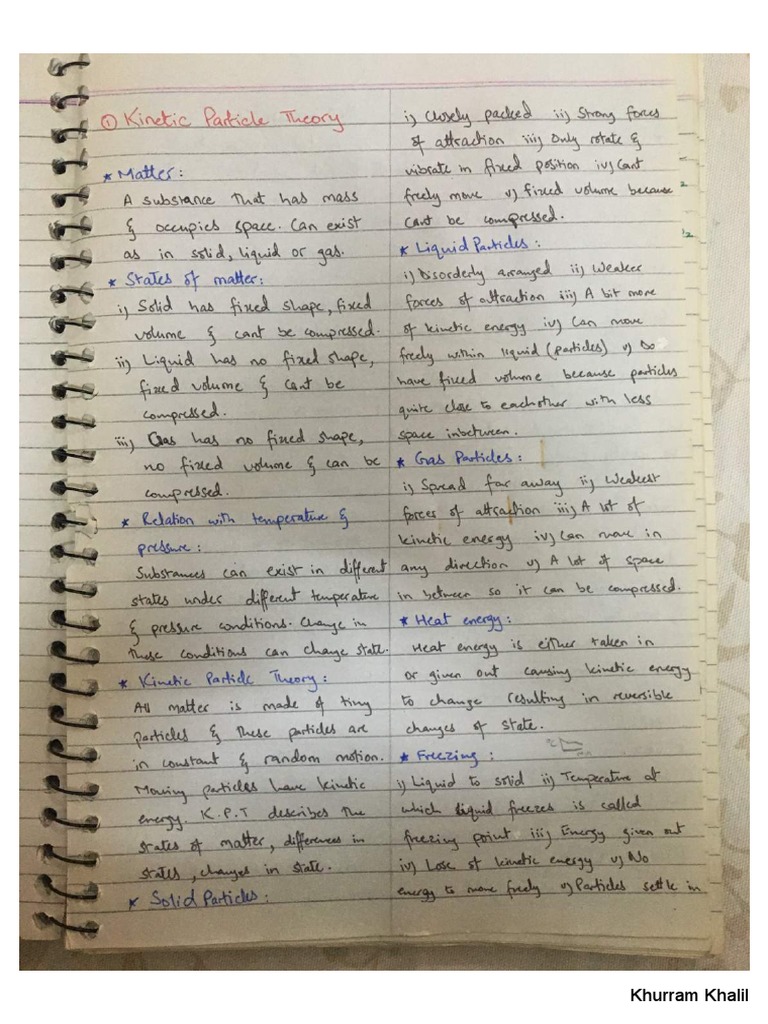 ① Kinetic Particle Theory
* Matter:
A substance that has mass
& occupies space. Can exist
as in solid, liquid or gas.
* States of matter:
i) Solid has fixed shape, fixed
volume & cant be compressed.
ii) Liquid has no fixed shape,
fixed volume & cant be
compressed.
iii) Gas has no fixed shape,
no fixed volume & can be
compressed.
* Relation with temperature &
pressure:
Substances can exist in different
states under different temperature
& pressure conditions. Change in
these conditions can change state.
* Kinetic Particle Theory:
All matter is made of tiny
particles & these particles are
in constant & random motion.
Moving particles have kinetic
energy. K.P.T describes the
states of matter, differences in
states, changes in state.
* Solid Particles:
i) Closely packed ii) Strong forces
of attraction iii) Only rotate &
vibrate in fixed position iv) Cant
freely move v) Fixed volume because
cant be compressed.
* Liquid Particles:
i) Disorderly arranged ii) Weaker
forces of attraction iii) A bit more
of kinetic energy iv) Can move
freely within liquid (particles) v) Do
have fixed volume because particles
quite close to eachother with less
space inbetween.
* Gas Particles:
i) Spread far away ii) Weakest
forces of attraction iii) A lot of
kinetic energy iv) Can move in
any direction v) A lot of space
in between so it can be compressed.
* Heat energy:
Heat energy is either taken in
or given out causing kinetic energy
to change resulting in reversible
changes of state.
* Freezing:
i) Liquid to solid ii) Temperature at
which liquid freezes is called
freezing point iii) Energy given out
iv) Lose of kinetic energy v) No
energy to move freely v) Particles settle in
Khurram Khalil